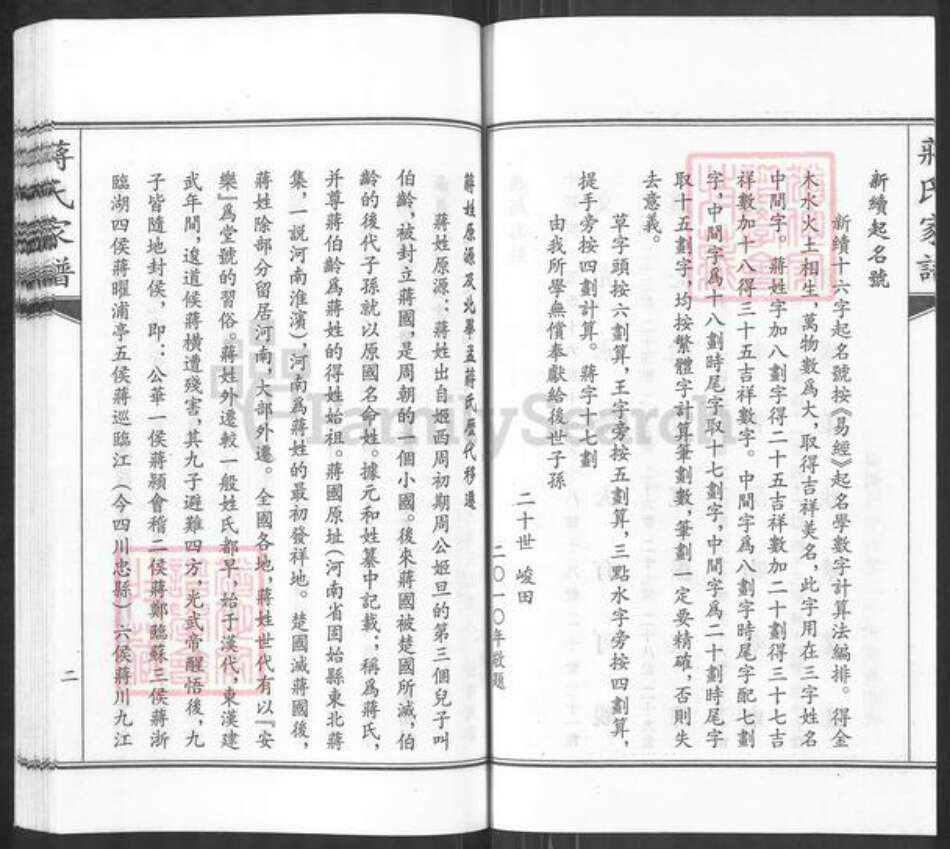 蔣氏家譜
新續起名號
新續十六字起名號按《易經》起名學數字計算法編排。得金
木水火土相生，萬物數爲大，取得吉祥美名，此字用在三字姓名
中間字。蔣姓字加八劃字得二十五吉祥數加二十劃得三十七吉
祥數加十八得三十五吉祥數字。中間字爲八劃字時尾字配七劃
字，中間字爲十八劃時尾字取十七劃字，中間字爲二十劃時尾字
取十五劃字，均按繁體字計算筆劃數，筆劃一定要精確，否則失
去意義。
草字頭按六劃算，王字旁按五劃算，三點水字旁按四劃算，
提手旁按四劃計算。蔣字十七劃
由我所學無償奉獻給後世子孫
二十世 峻田
二〇一〇年敬題
蔣姓原源及北華孟蔣氏歷代移遷
蔣姓原源：蔣姓出自姬西周初期周公姬旦的第三個兒子叫
伯齡，被封立蔣國，是周朝的一個小國。後來蔣國被楚國所滅，伯
齡的後代子孫就以原國名命姓。據元和姓纂中記載；稱爲蔣氏，
并尊蔣伯齡爲蔣姓的得姓始祖。蔣國原址（河南省固始縣東北蔣
集，一説河南淮濱），河南爲蔣姓的最初發祥地。楚國滅蔣國後，
蔣姓除部分留居河南，大部外遷。全國各地，蔣姓世代有以『安
樂』爲堂號的習俗。蔣姓外遷較一般姓氏都早，始于漢代，東漢建
武年間，逡道候蔣横遭殘害，其九子避難四方，光武帝醒悟後，九
子皆隨地封侯，即：公華一侯蔣穎會稽二侯蔣鄭臨蘇三侯蔣浙
臨湖四侯蔣曜浦亭五侯蔣巡臨江（今四川忠縣）六侯蔣川九江
蔣氏家譜
二
FamilySearch